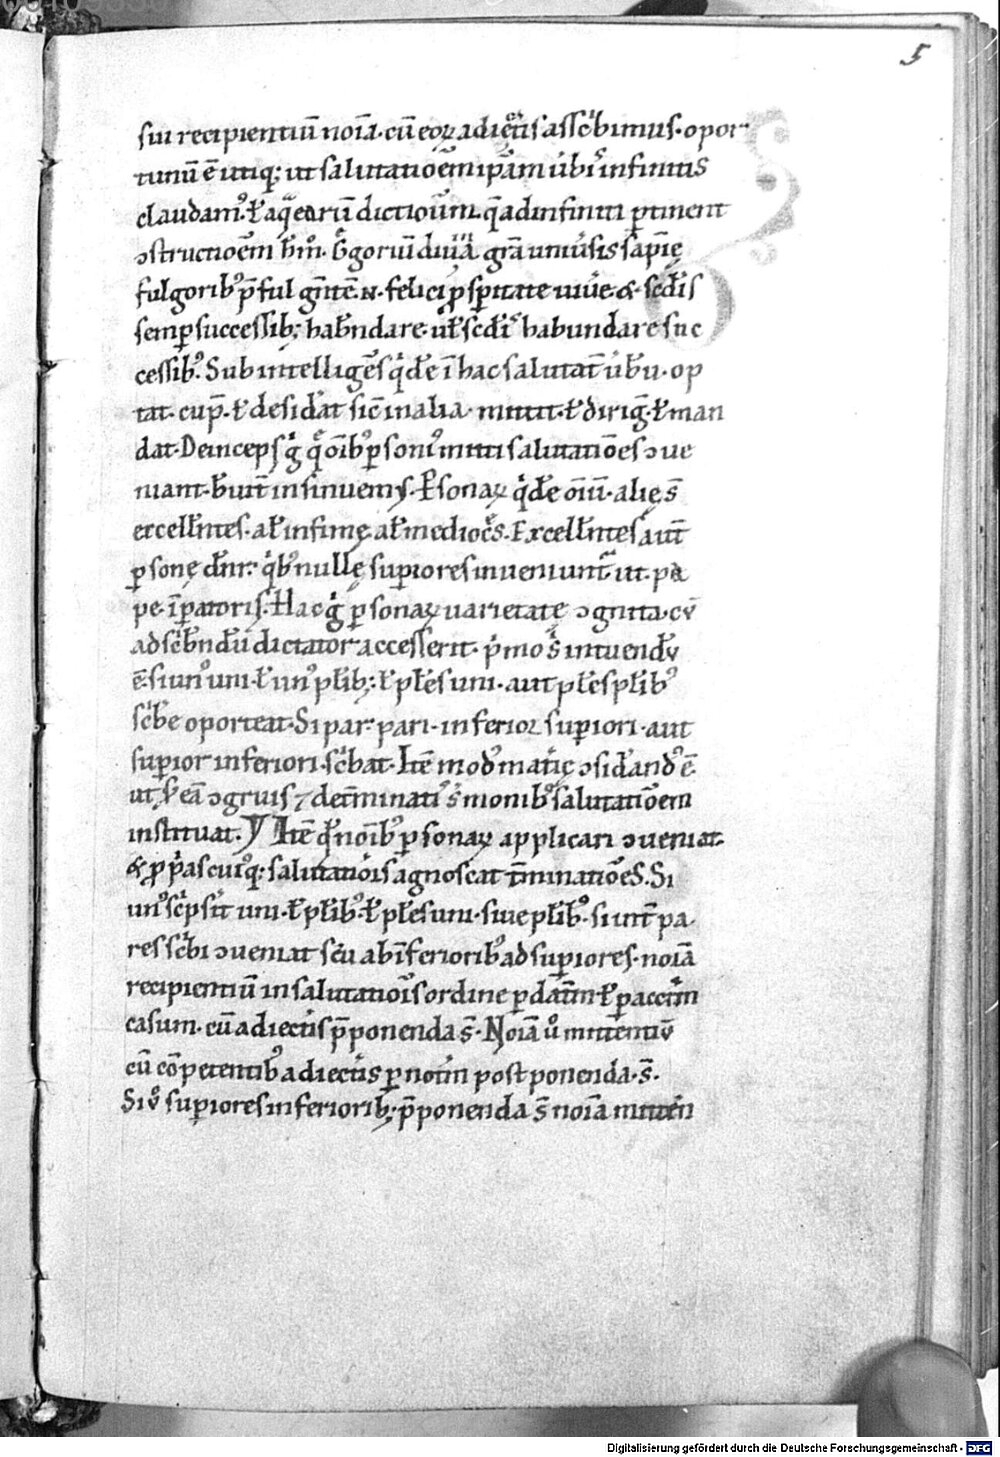 5
sui recipientiū noīa. cū eoꝝ adiectis assc̄bimus. opor
tunū ē utiqꝫ ut salutatioēm ip̄am ūbi infinitis
claudamꝰ. ł aqᷓe eariū dictioūm. q̄ ad infiniti ꝑtinent
ɔstructioēm
fulgoribꝰ p̄fulgn̄tē. N. felici ꝓsꝑitate uiuᷓe. & sedīs
semꝑ successibꝫ habn̄dare. ūł sedīs habundare suc
cessibꝰ. Subintelligēs qͥdē ī hac salutat̄ ūbū. op
tat. cup̄. ł desid̄at sic̄ in alia mittit. ł diriḡ. ł man
dat. Deinceps gͦ qͦ oīb; ꝑsonis mitti salutatiōes ɔue
niant. b̄uit̄ insinuemꝰ. ꝑsonaꝝ qͥdē oīū. alię s̄
excellentes. al̄ infimę al̄ mediocͥs. Excellentes aūt
ꝑsonę dn̄r. qͥbꝰ nullę suꝑiores inueniunt̄ ut. pa
pe. īꝑatoris. Hac gͦ ꝑsonaꝝ uarietate ɔgnita. cū
ad sc̄bn̄dū dictator accesserit. pͥmo s̄ intuendū
ē. si unꝰ uni. ł unꝰ pl̄ibꝫ. ł pl̄es uni. aut pl̄es pl̄ibꝰ
sc̄be oporteat. Si par pari. inferior suꝑiori. aut
suꝑior inferiori. sc̄bat. Itē modꝰ matͥię ɔsid̄andꝰ ē.
ut s̄ eā ɔgruis ⁊ det̄minatis s̄monibꝰ salutatiōem
instituat. Itē q̄ noībꝰ ꝑsonaꝝ applicari ɔueniat.
& ꝓpͥas cuiꝰqꝫ salutatiōis agnoscat t̄minatiōes. Si
unꝰ scͥpsit uni. ł pl̄ibꝰ. ł pl̄es uni. siue pl̄ibꝰ. si int̄ pa
res sc̄bi ɔueniat seu ab īferioribꝰ ad suꝑiores. noīa
recipientiū in salutatiōis ordine ꝑ datm̄ ł ꝑ acctm̄
casum. cū adiectis p̄ponenda s̄. Noīa uͦ mittentiū
cū cōpetentibꝰ adiectis ꝑ notm̄ postponenda. s̄.
Si uͦ suꝑiores inferioribꝫ p̄ponenda s̄ noīa mitten̄
Digitalisierung gefördert durch die Deutsche Forschungsgemeinschaft - DFG